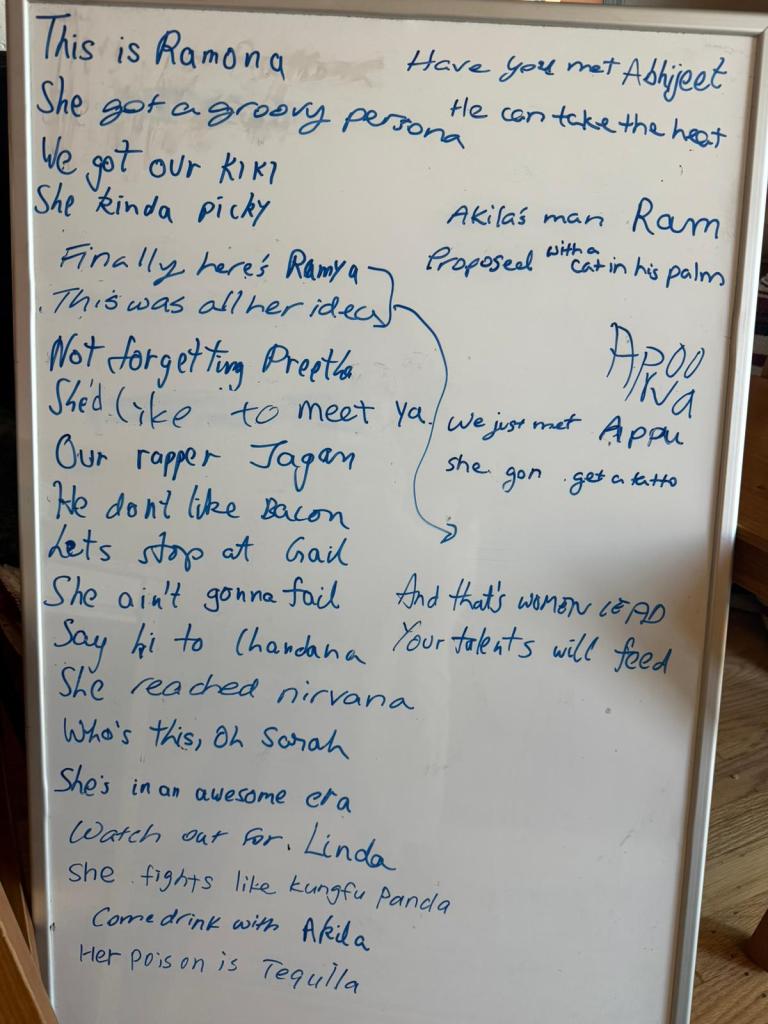 This is Ramona
She got a groovy persona
We got our KIKI
She kinda picky
Finally here's Ramya
This was all her idea
Not forgetting Preetha
She'd like to meet ya.
Our rapper Jagan
He don't like Bacon
Lets stop at Gail
She ain't gonna fail
Say hi to Chandana
She reached nirvana
Who's this, Oh Sarah
She's in an awesome era
Watch out for. Linda
She fights like kungfu Panda
Come drink with Akila
Her poison is Tequila
Have you met Abhijeet
He can take the heat
Akila's man Ram
Proposed with a cat in his palm
Apoo
rva
We just met Appu
she gon get a tatto
And that's WOMEN LEAD
Your talents will feed